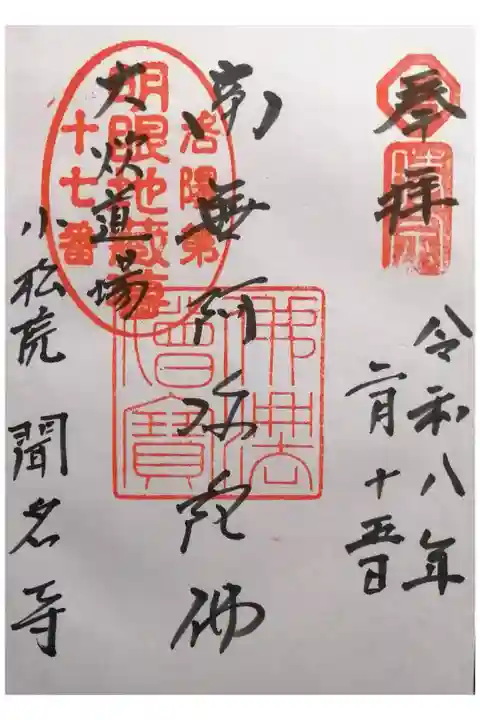 奉拝
時宗
令和八年
二月十五日
南無阿弥陀佛
佛法
僧寶
洛陽第
明眼地蔵尊
十七番
大炊道場
小松院 聞名寺